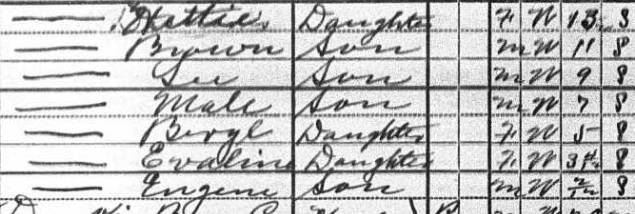 — Hattie Daughter F W 13 S
— Brown Son M W 11 S
— Lee Son M W 9 S
— Male Son M W 7 S
— Beryl Daughter F W 5 S
— Evaline Daughter F W S
— Eugene Son M W S